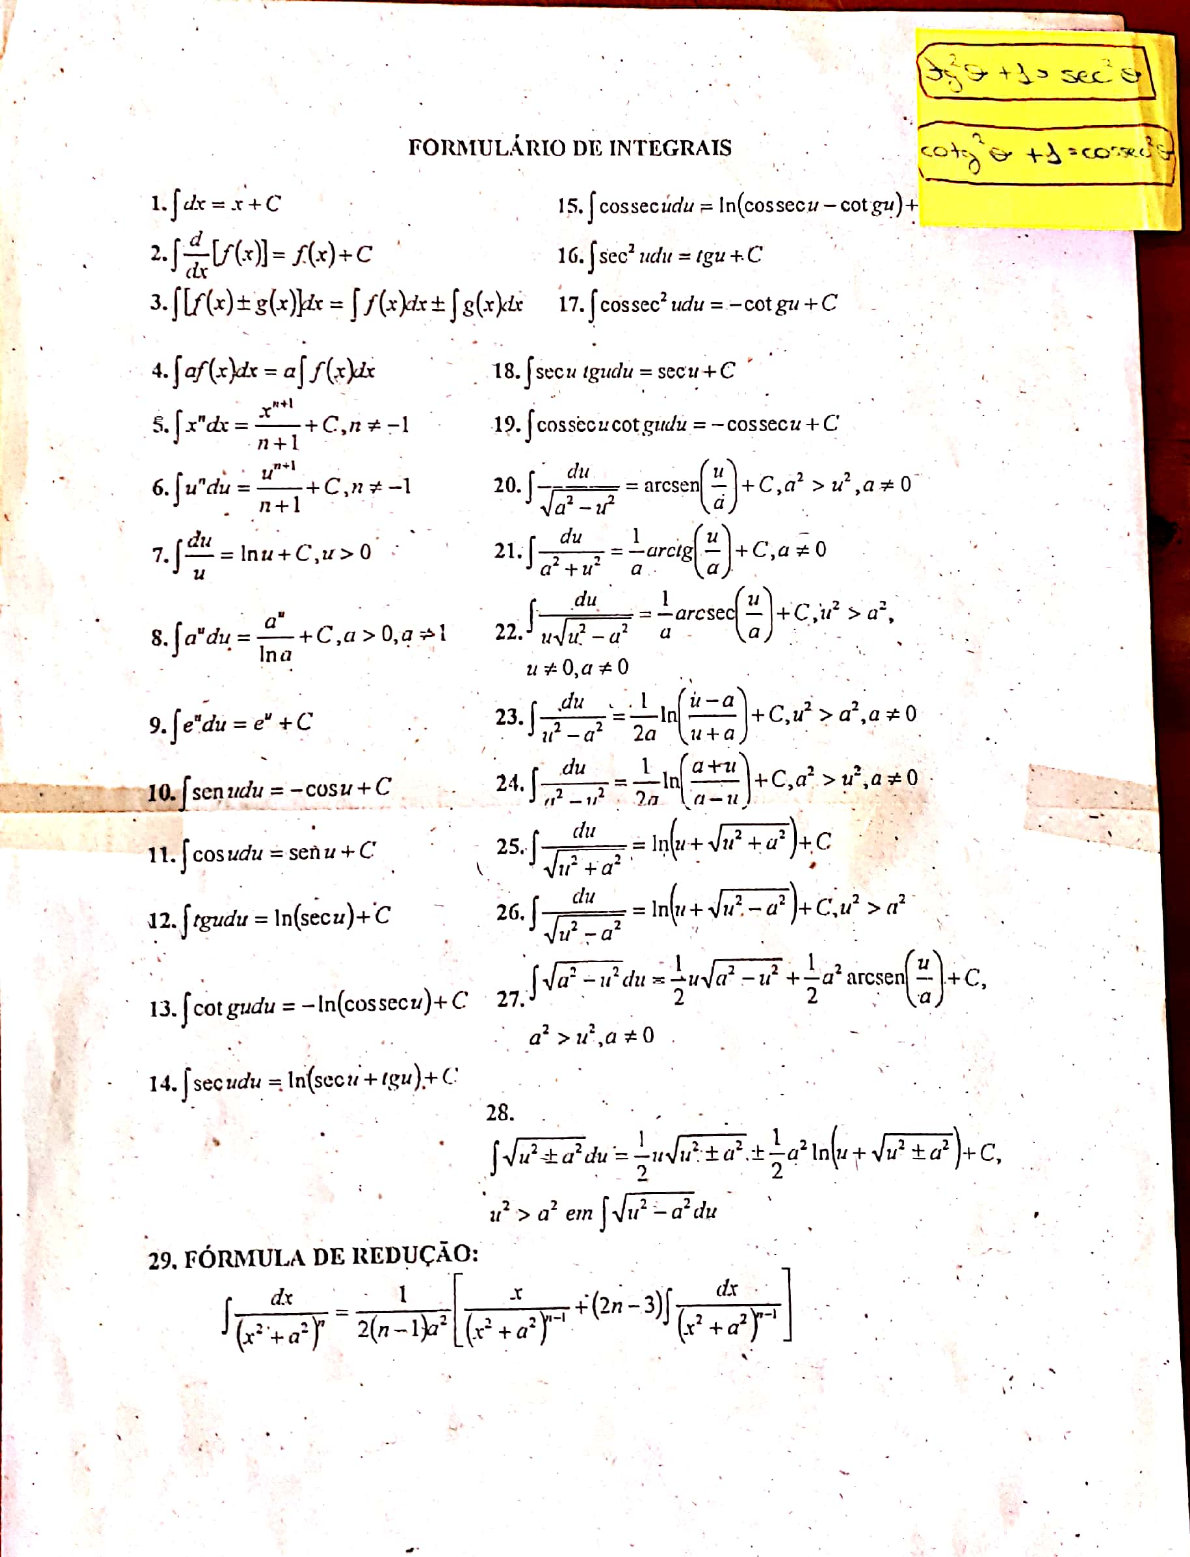 tg²θ + 1 = sec²θ
cotg²θ + 1 = cossec²θ
FORMULÁRIO DE INTEGRAIS
1. ∫dx = x + C
2. ∫d/dx [f(x)] = f(x) + C
3. ∫[f(x) ± g(x)]dx = ∫f(x)dx ± ∫g(x)dx
4. ∫af(x)dx = a∫f(x)dx
5. ∫xⁿdx = xⁿ⁺¹/(n+1) + C, n ≠ −1
6. ∫uⁿdu = uⁿ⁺¹/(n+1) + C, n ≠ −1
7. ∫du/u = ln u + C, u > 0
8. ∫aᵘdu = aᵘ/ln a + C, a > 0, a ≠ 1
9. ∫eᵘdu = eᵘ + C
10. ∫sen udu = −cos u + C
11. ∫cos udu = sen u + C
12. ∫tgudu = ln(sec u) + C
13. ∫cot gudu = −ln(cos sec u) + C
14. ∫sec udu = ln(sec u + tgu) + C
15. ∫cos sec udu = ln(cos sec u − cot gu) +
16. ∫sec² udu = tgu + C
17. ∫cos sec² udu = −cot gu + C
18. ∫sec u tgudu = sec u + C
19. ∫cos sec u cot gudu = −cos sec u + C
20. ∫du/√(a² − u²) = arcsen(u/a) + C, a² > u², a ≠ 0
21. ∫du/(a² + u²) = 1/a arctg(u/a) + C, a ≠ 0
22. ∫du/(u√(u² − a²)) = 1/a arcsec(u/a) + C, u² > a²,
u ≠ 0, a ≠ 0
23. ∫du/(u² − a²) = 1/2a ln((u − a)/(u + a)) + C, u² > a², a ≠ 0
24. ∫du/(a² − u²) = 1/2a ln((a + u)/(a − u)) + C, a² > u², a ≠ 0
25. ∫du/√(u² + a²) = ln(u + √(u² + a²)) + C
26. ∫du/√(u² − a²) = ln(u + √(u² − a²)) + C, u² > a²
27. ∫√(a² − u²)du = 1/2 u√(a² − u²) + 1/2 a² arcsen(u/a) + C,
a² > u², a ≠ 0
28.
∫√(u² ± a²)du = 1/2 u√(u² ± a²) ± 1/2 a² ln(u + √(u² ± a²)) + C,
u² > a² em ∫√(u² − a²)du
29. FÓRMULA DE REDUÇÃO:
∫dx/(x² + a²)ⁿ = 1/(2(n − 1)a²) [x/(x² + a²)ⁿ⁻¹ + (2n − 3)∫dx/(x² + a²)ⁿ⁻¹]